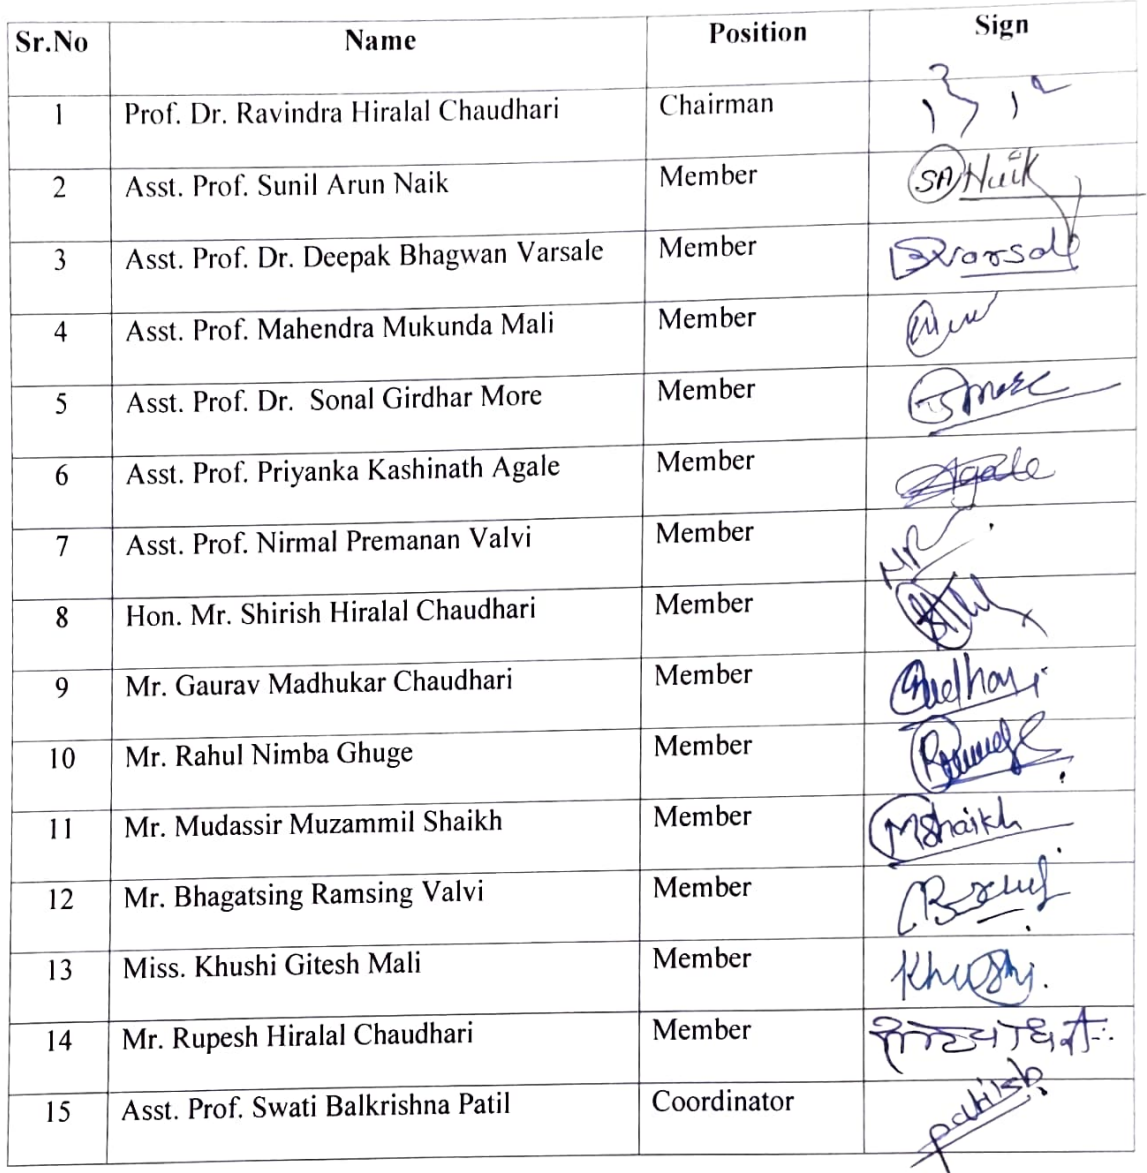 Sr.No Name Position Sign
1 Prof. Dr. Ravindra Hiralal Chaudhari Chairman
2 Asst. Prof. Sunil Arun Naik Member SA Naik
3 Asst. Prof. Dr. Deepak Bhagwan Varsale Member Varsale
4 Asst. Prof. Mahendra Mukunda Mali Member
5 Asst. Prof. Dr. Sonal Girdhar More Member More
6 Asst. Prof. Priyanka Kashinath Agale Member Agale
7 Asst. Prof. Nirmal Premanan Valvi Member
8 Hon. Mr. Shirish Hiralal Chaudhari Member
9 Mr. Gaurav Madhukar Chaudhari Member
10 Mr. Rahul Nimba Ghuge Member
11 Mr. Mudassir Muzammil Shaikh Member MShaikh
12 Mr. Bhagatsing Ramsing Valvi Member
13 Miss. Khushi Gitesh Mali Member Khushi.
14 Mr. Rupesh Hiralal Chaudhari Member
15 Asst. Prof. Swati Balkrishna Patil Coordinator patilsb